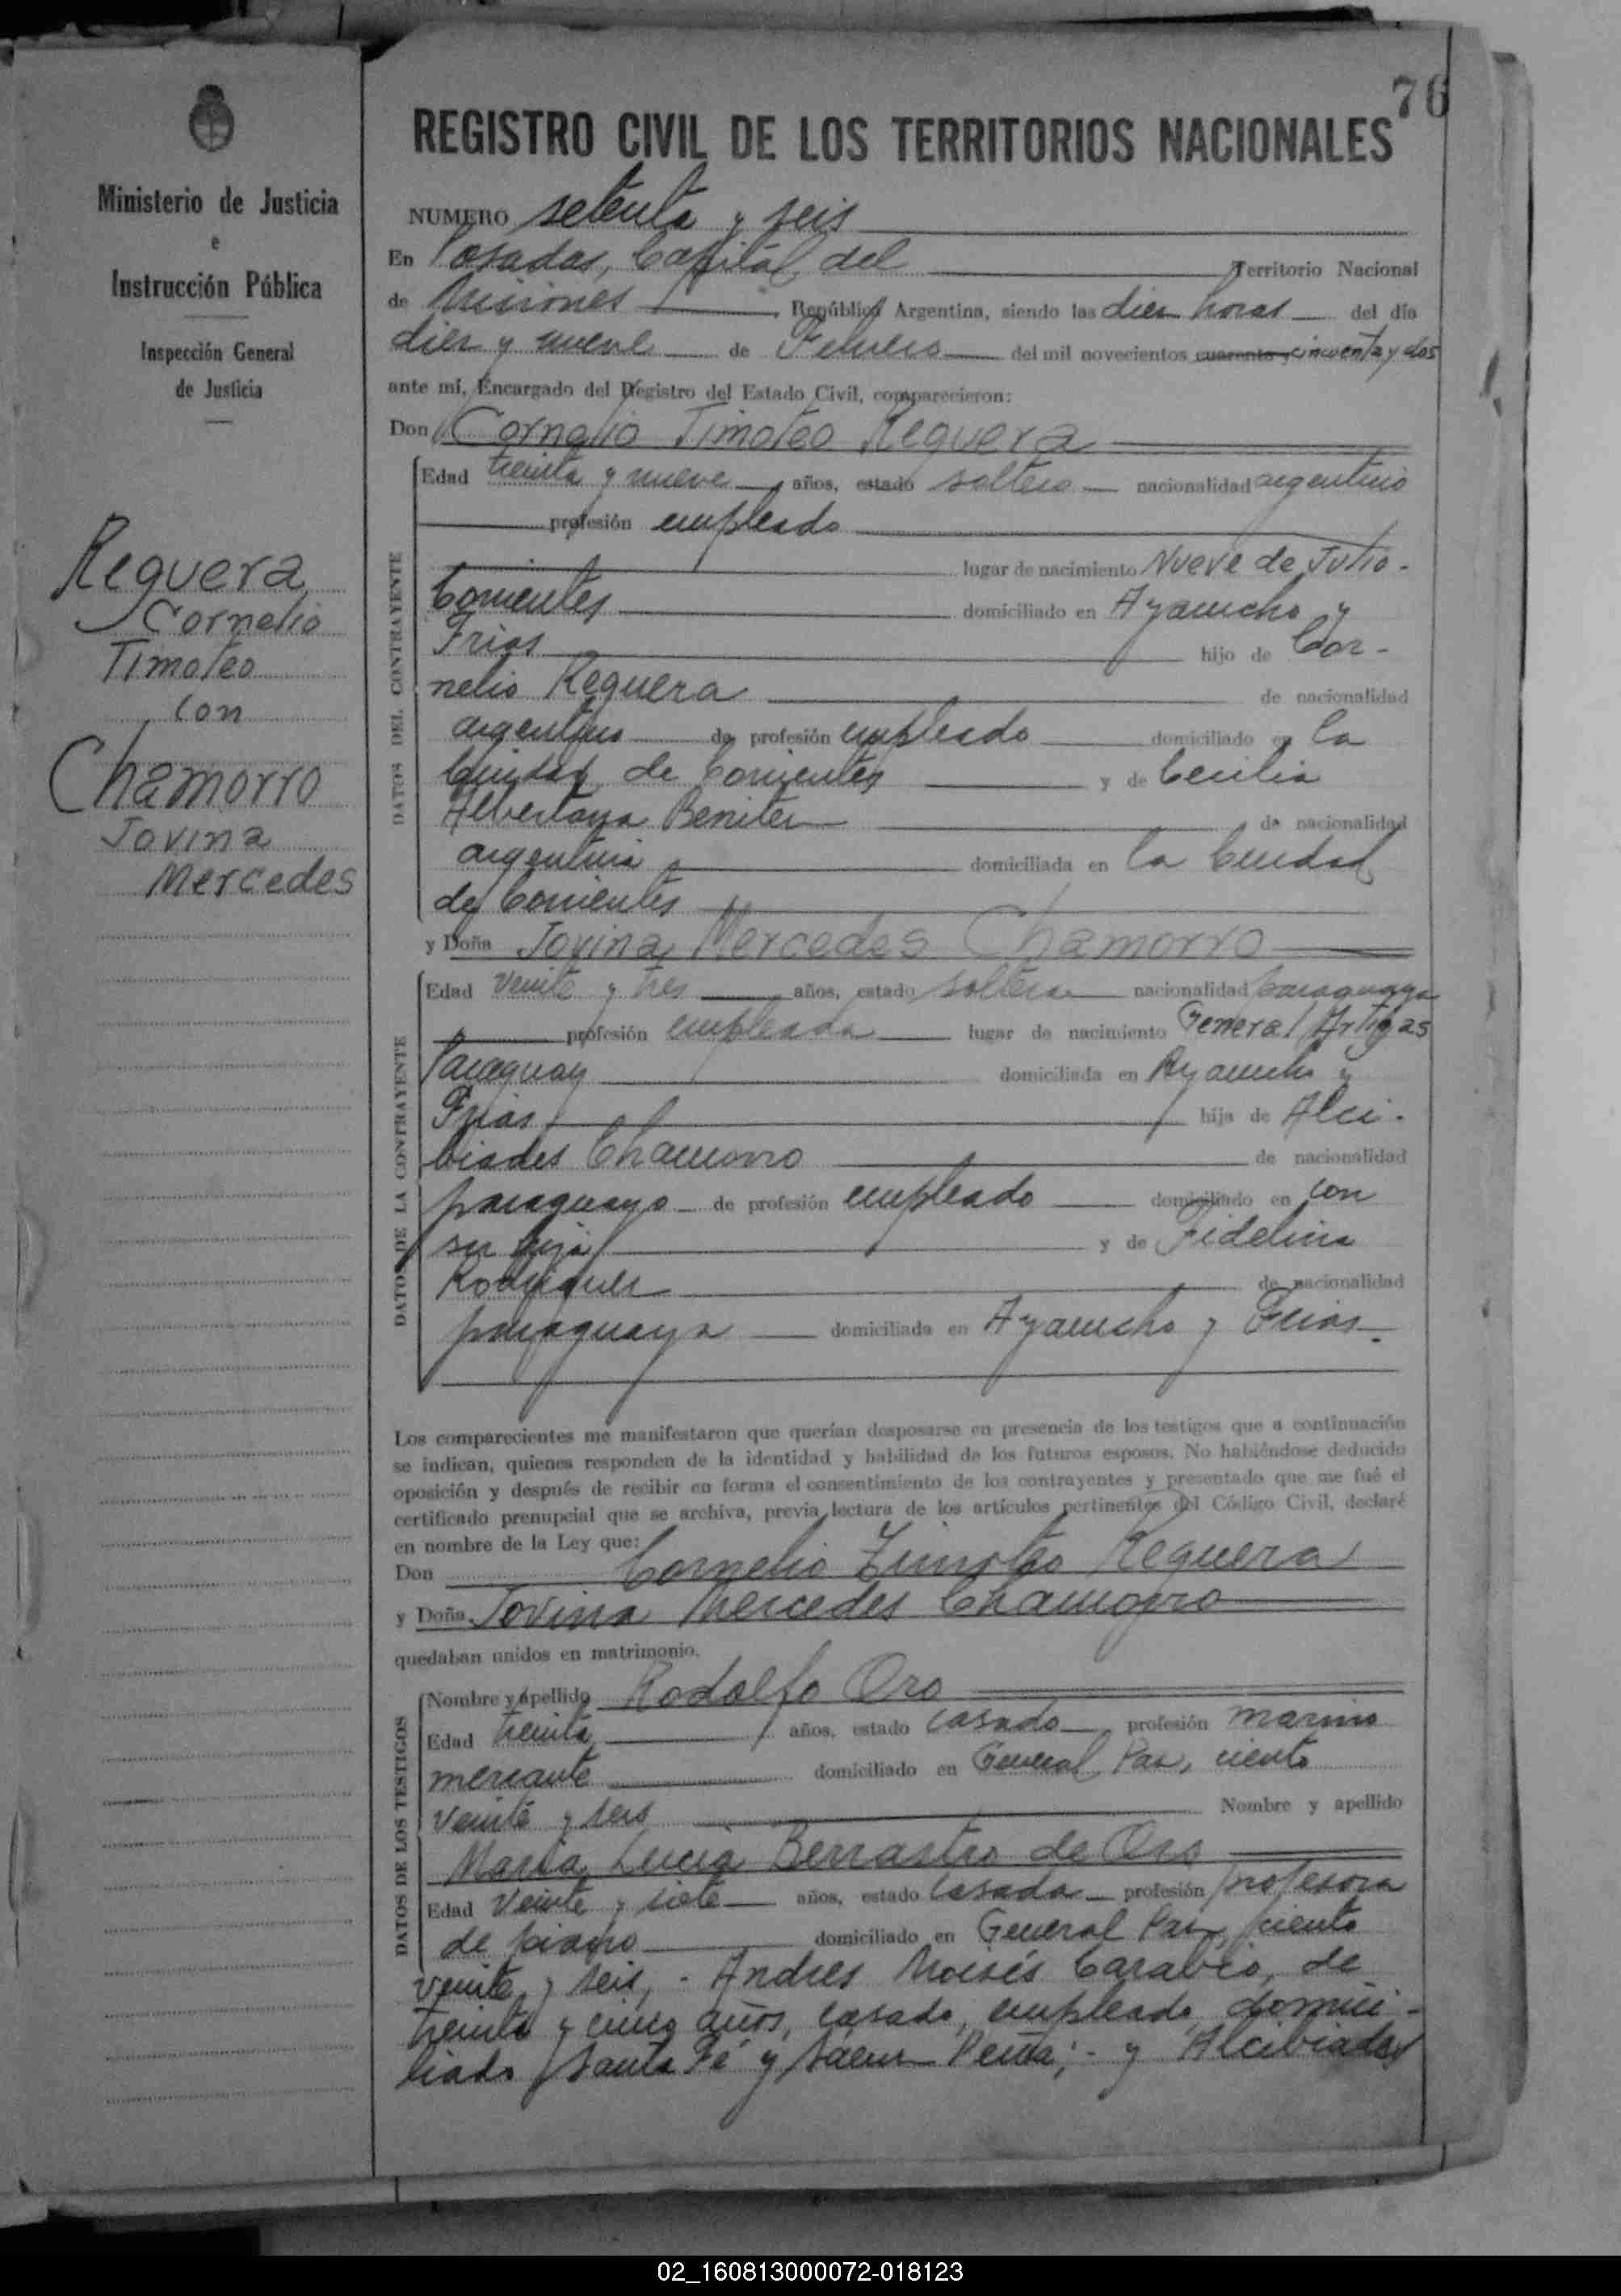 76
REGISTRO CIVIL DE LOS TERRITORIOS NACIONALES
Ministerio de Justicia
e
Instrucción Pública
Inspección General
de Justicia
Reguera
Cornelio
Timoteo
con
Chamorro
Jovina
Mercedes
NUMERO setenta y seis
En Posadas, Capital del Territorio Nacional
de Misiones, República Argentina, siendo las diez horas del día
diez y nueve de Febrero del mil novecientos cuarenta y cincuenta y dos
ante mí, Encargado del Registro del Estado Civil, comparecieron:
Don Cornelio Timoteo Reguera
DATOS DEL CONTRAYENTE
Edad treinta y nueve años, estado soltero nacionalidad argentino
profesión empleado
lugar de nacimiento Nueve de Julio -
Corrientes domiciliado en Ayacucho y
Frias hijo de Cor -
nelio Reguera de nacionalidad
argentino de profesión empleado domiciliado en la
Ciudad de Corrientes y de Cecilia
Benitez de nacionalidad
argentina domiciliada en la Ciudad
de Corrientes
y Doña Jovina Mercedes Chamorro
DATOS DE LA CONTRAYENTE
Edad veinte y tres años, estado soltera nacionalidad paraguaya
profesión empleada lugar de nacimiento General Artigas
Paraguay domiciliada en Ayacucho y
Frias hija de Alci -
biades Chamorro de nacionalidad
paraguayo de profesión empleado domiciliado en con
su hija y de Fidelina
Rodriguez de nacionalidad
paraguaya domiciliada en Ayacucho y Frias.
Los comparecientes me manifestaron que querían desposarse en presencia de los testigos que a continuación
se indican, quienes responden de la identidad y habilidad de los futuros esposos. No habiéndose deducido
oposición y después de recibir en forma el consentimiento de los contrayentes y presentado que me fué el
certificado prenupcial que se archiva, previa lectura de los artículos pertinentes del Código Civil, declaré
en nombre de la Ley que:
Don Cornelio Timoteo Reguera
y Doña Jovina Mercedes Chamorro
quedaban unidos en matrimonio.
DATOS DE LOS TESTIGOS
Nombre y apellido Rodolfo Oro
Edad treinta años, estado casado profesión marino
mercante domiciliado en General Paz, ciento
veinte y seis Nombre y apellido
Maria Lucia Berrastro de Oro
Edad veinte y siete años, estado casada profesión profesora
de piano domiciliado en General Paz, ciento
veinte y seis, - Andres Moisés Carabio, de
treinta y cinco años, casado, empleado, domici -
liado Santa Fé y Sáenz Peña; - y Alcibiades
02_160813000072-018123